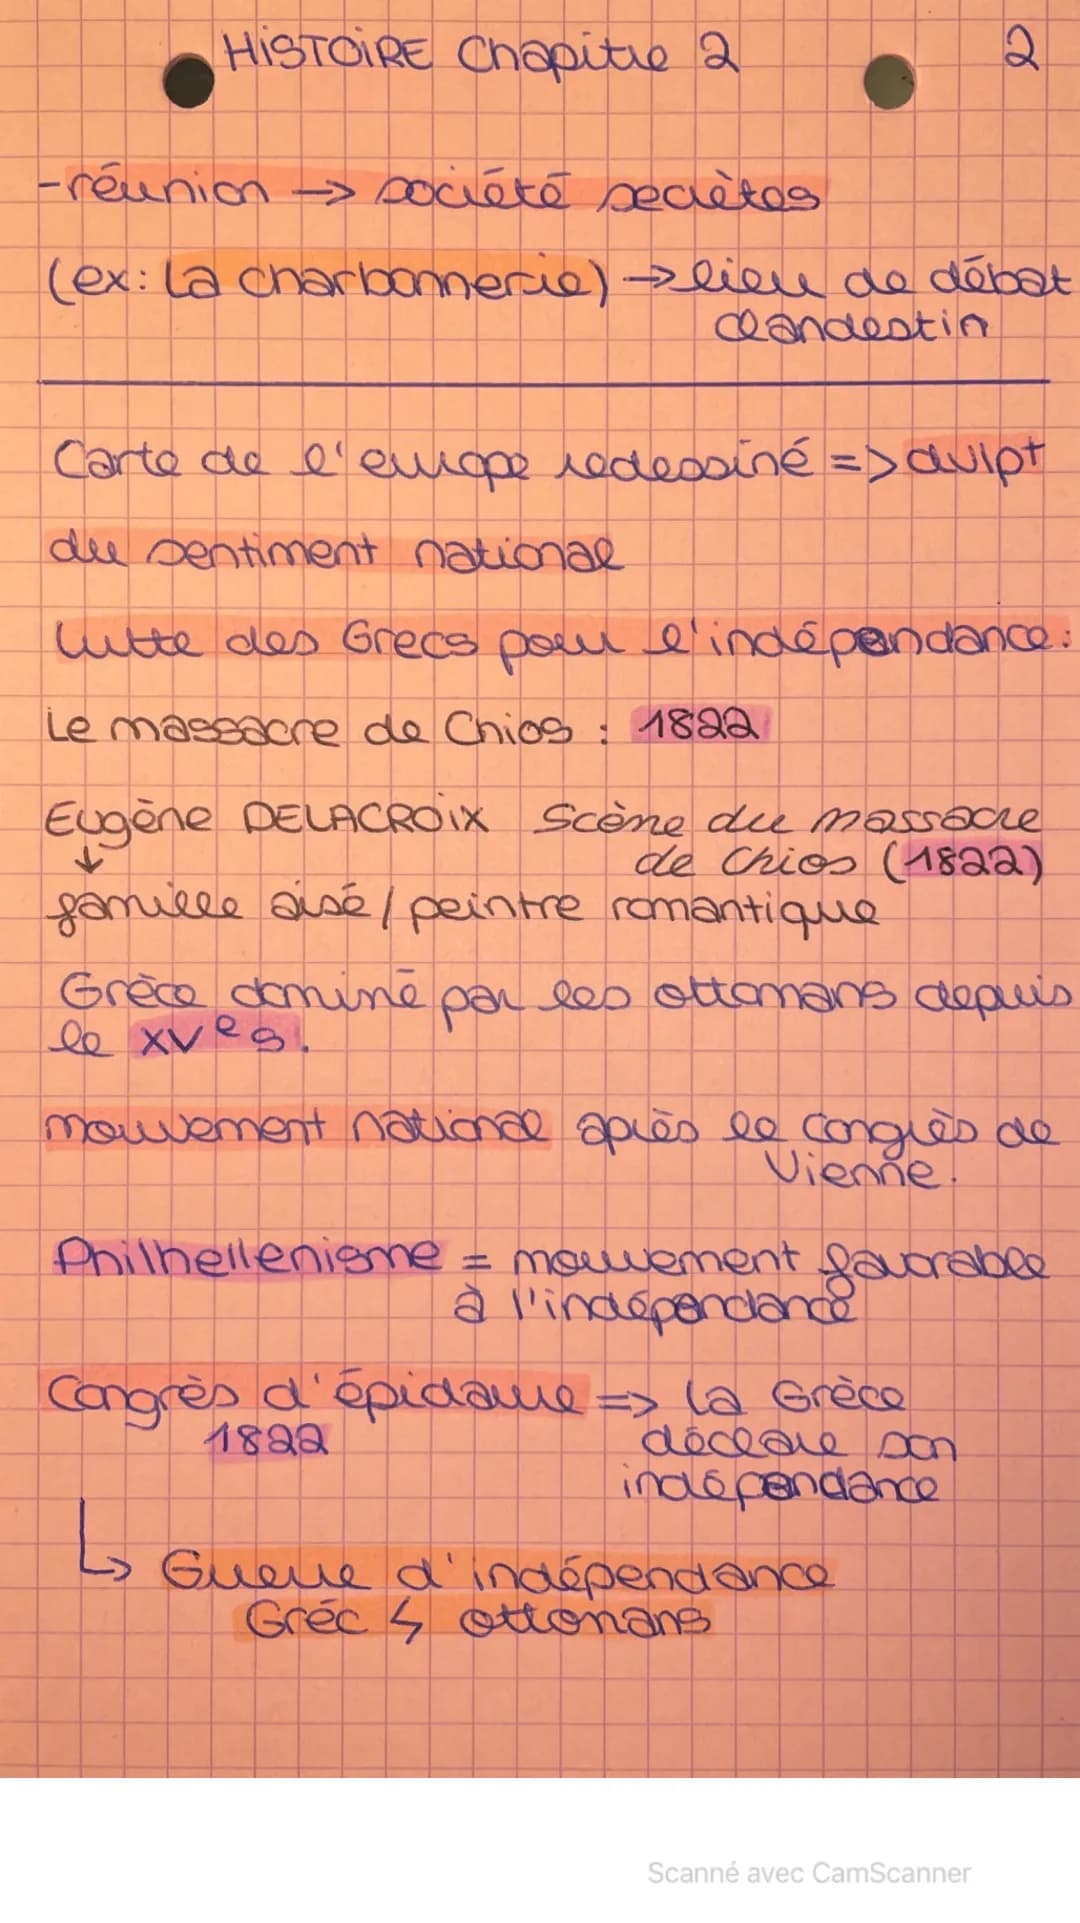 HISTOIRE Chapitre 2
2
-réunion → société secrètes
(ex: La charbonnerie) → lieu de débat
clandestin
Carte de l'europe redessiné => dvlpt
du sentiment national
Lutte des Grecs pour l'indépendance:
Le massacre de Chios : 1822
Eugène DELACROIX Scène du massacre
↓ de Chios (1822)
famille aisé / peintre romantique
Grèce dominé par les ottomans depuis
le XVe s.
mouvement national après le Congrès de
Vienne.
Philhellenisme = mouvement favorable
à l'indépendance
Congrès d'épidaure => La Grèce
1822 déclare son
indépendance
↳ Guerre d'indépendance
Gréc ↯ ottomans
Scanné avec CamScanner